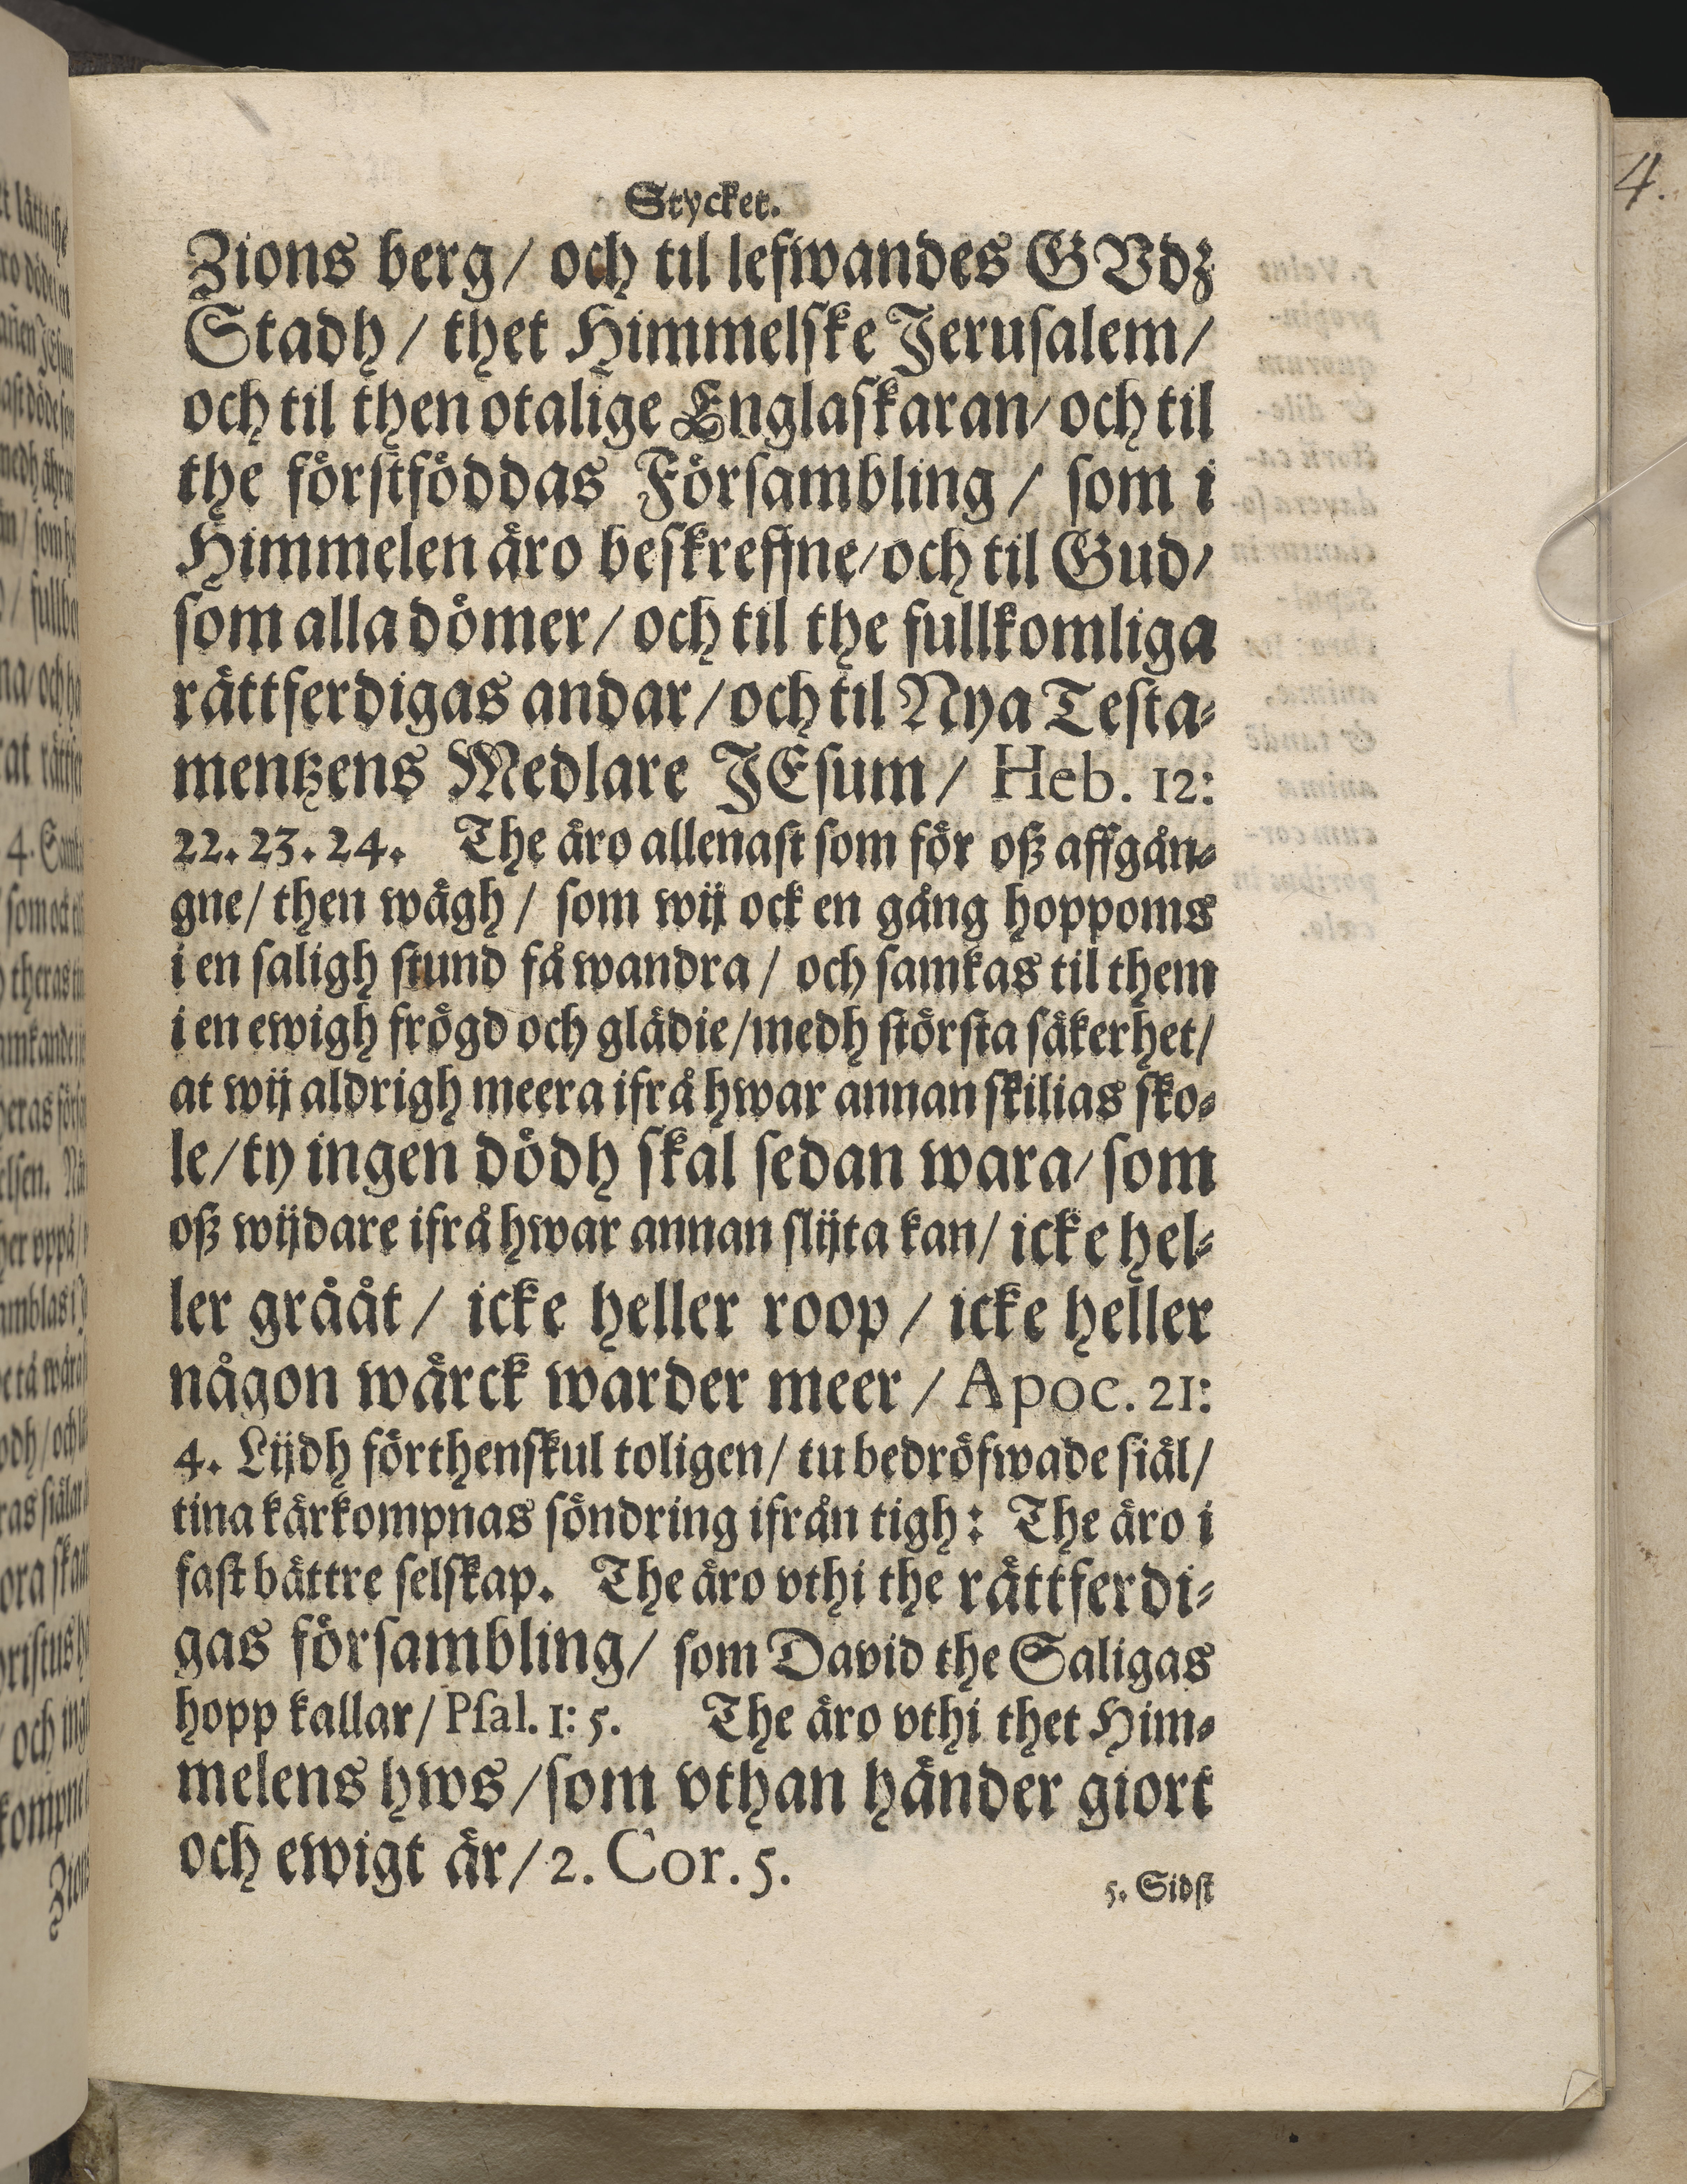 Stycket.
Zions berg / och til lefwandes GVdz
Stadh / thet Himmelske Jerusalem /
och til then otalige Englaskaran / och til
the förstföddas Försambling / som i
Himmelen äro beskreffne / och til Gud /
som alla dömer / och til the fullkomliga
rättferdigas andar / och til Nya Testa-
mentzens Medlare JEsum / Heb. 12:
22. 23. 24. The äro allenast som för oß affgån-
gne / then wägh / som wij ock en gång hoppoms
i en saligh stund få wandra / och samkas til them
i en ewigh frögd och glädie / medh största säkerhet /
at wij aldrigh meera ifrå hwar annan skilias sko-
le / ty ingen dödh skal sedan wara / som
oß wijdare ifrå hwar annan slijta kan / icke hel-
ler grååt / icke heller roop / icke heller
någon wärck warder meer / Apoc. 21:
4. Lijdh förthenskul toligen / tu bedröfwade siäl /
tina kärkompnas söndring ifrån tigh: The äro i
fast bättre selskap. The äro vthi the rättferdi-
gas försambling / som David the Saligas
hopp kallar / Psal. 1: 5. The äro vthi thet Him-
melens hws / som vthan händer giort
och ewigt är / 2. Cor. 5.
5. Sidst
4.